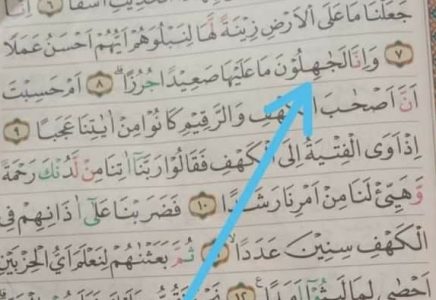 الْحَدِيْثِ اَسَفًا ٦
جَعَلْنَا مَا عَلَى الْاَرْضِ زِيْنَةً لَّهَا لِنَبْلُوَهُمْ اَيُّهُمْ اَحْسَنُ عَمَلًا
٧ وَاِنَّا لَجٰهِلُوْنَ مَا عَلَيْهَا صَعِيْدًا جُرُزًاۗ ٨ اَمْ حَسِبْتَ
اَنَّ اَصْحٰبَ الْكَهْفِ وَالرَّقِيْمِ كَانُوْا مِنْ اٰيٰتِنَا عَجَبًا ٩
اِذْ اَوَى الْفِتْيَةُ اِلَى الْكَهْفِ فَقَالُوْا رَبَّنَآ اٰتِنَا مِنْ لَّدُنْكَ رَحْمَةً
وَّهَيِّئْ لَنَا مِنْ اَمْرِنَا رَشَدًا ١٠ فَضَرَبْنَا عَلٰٓى اٰذَانِهِمْ فِى
الْكَهْفِ سِنِيْنَ عَدَدًاۙ ثُمَّ بَعَثْنٰهُمْ لِنَعْلَمَ اَيُّ الْحِزْبَيْنِ
اَحْصٰى لِمَا لَبِثُوْٓا اَمَدًا ١٢